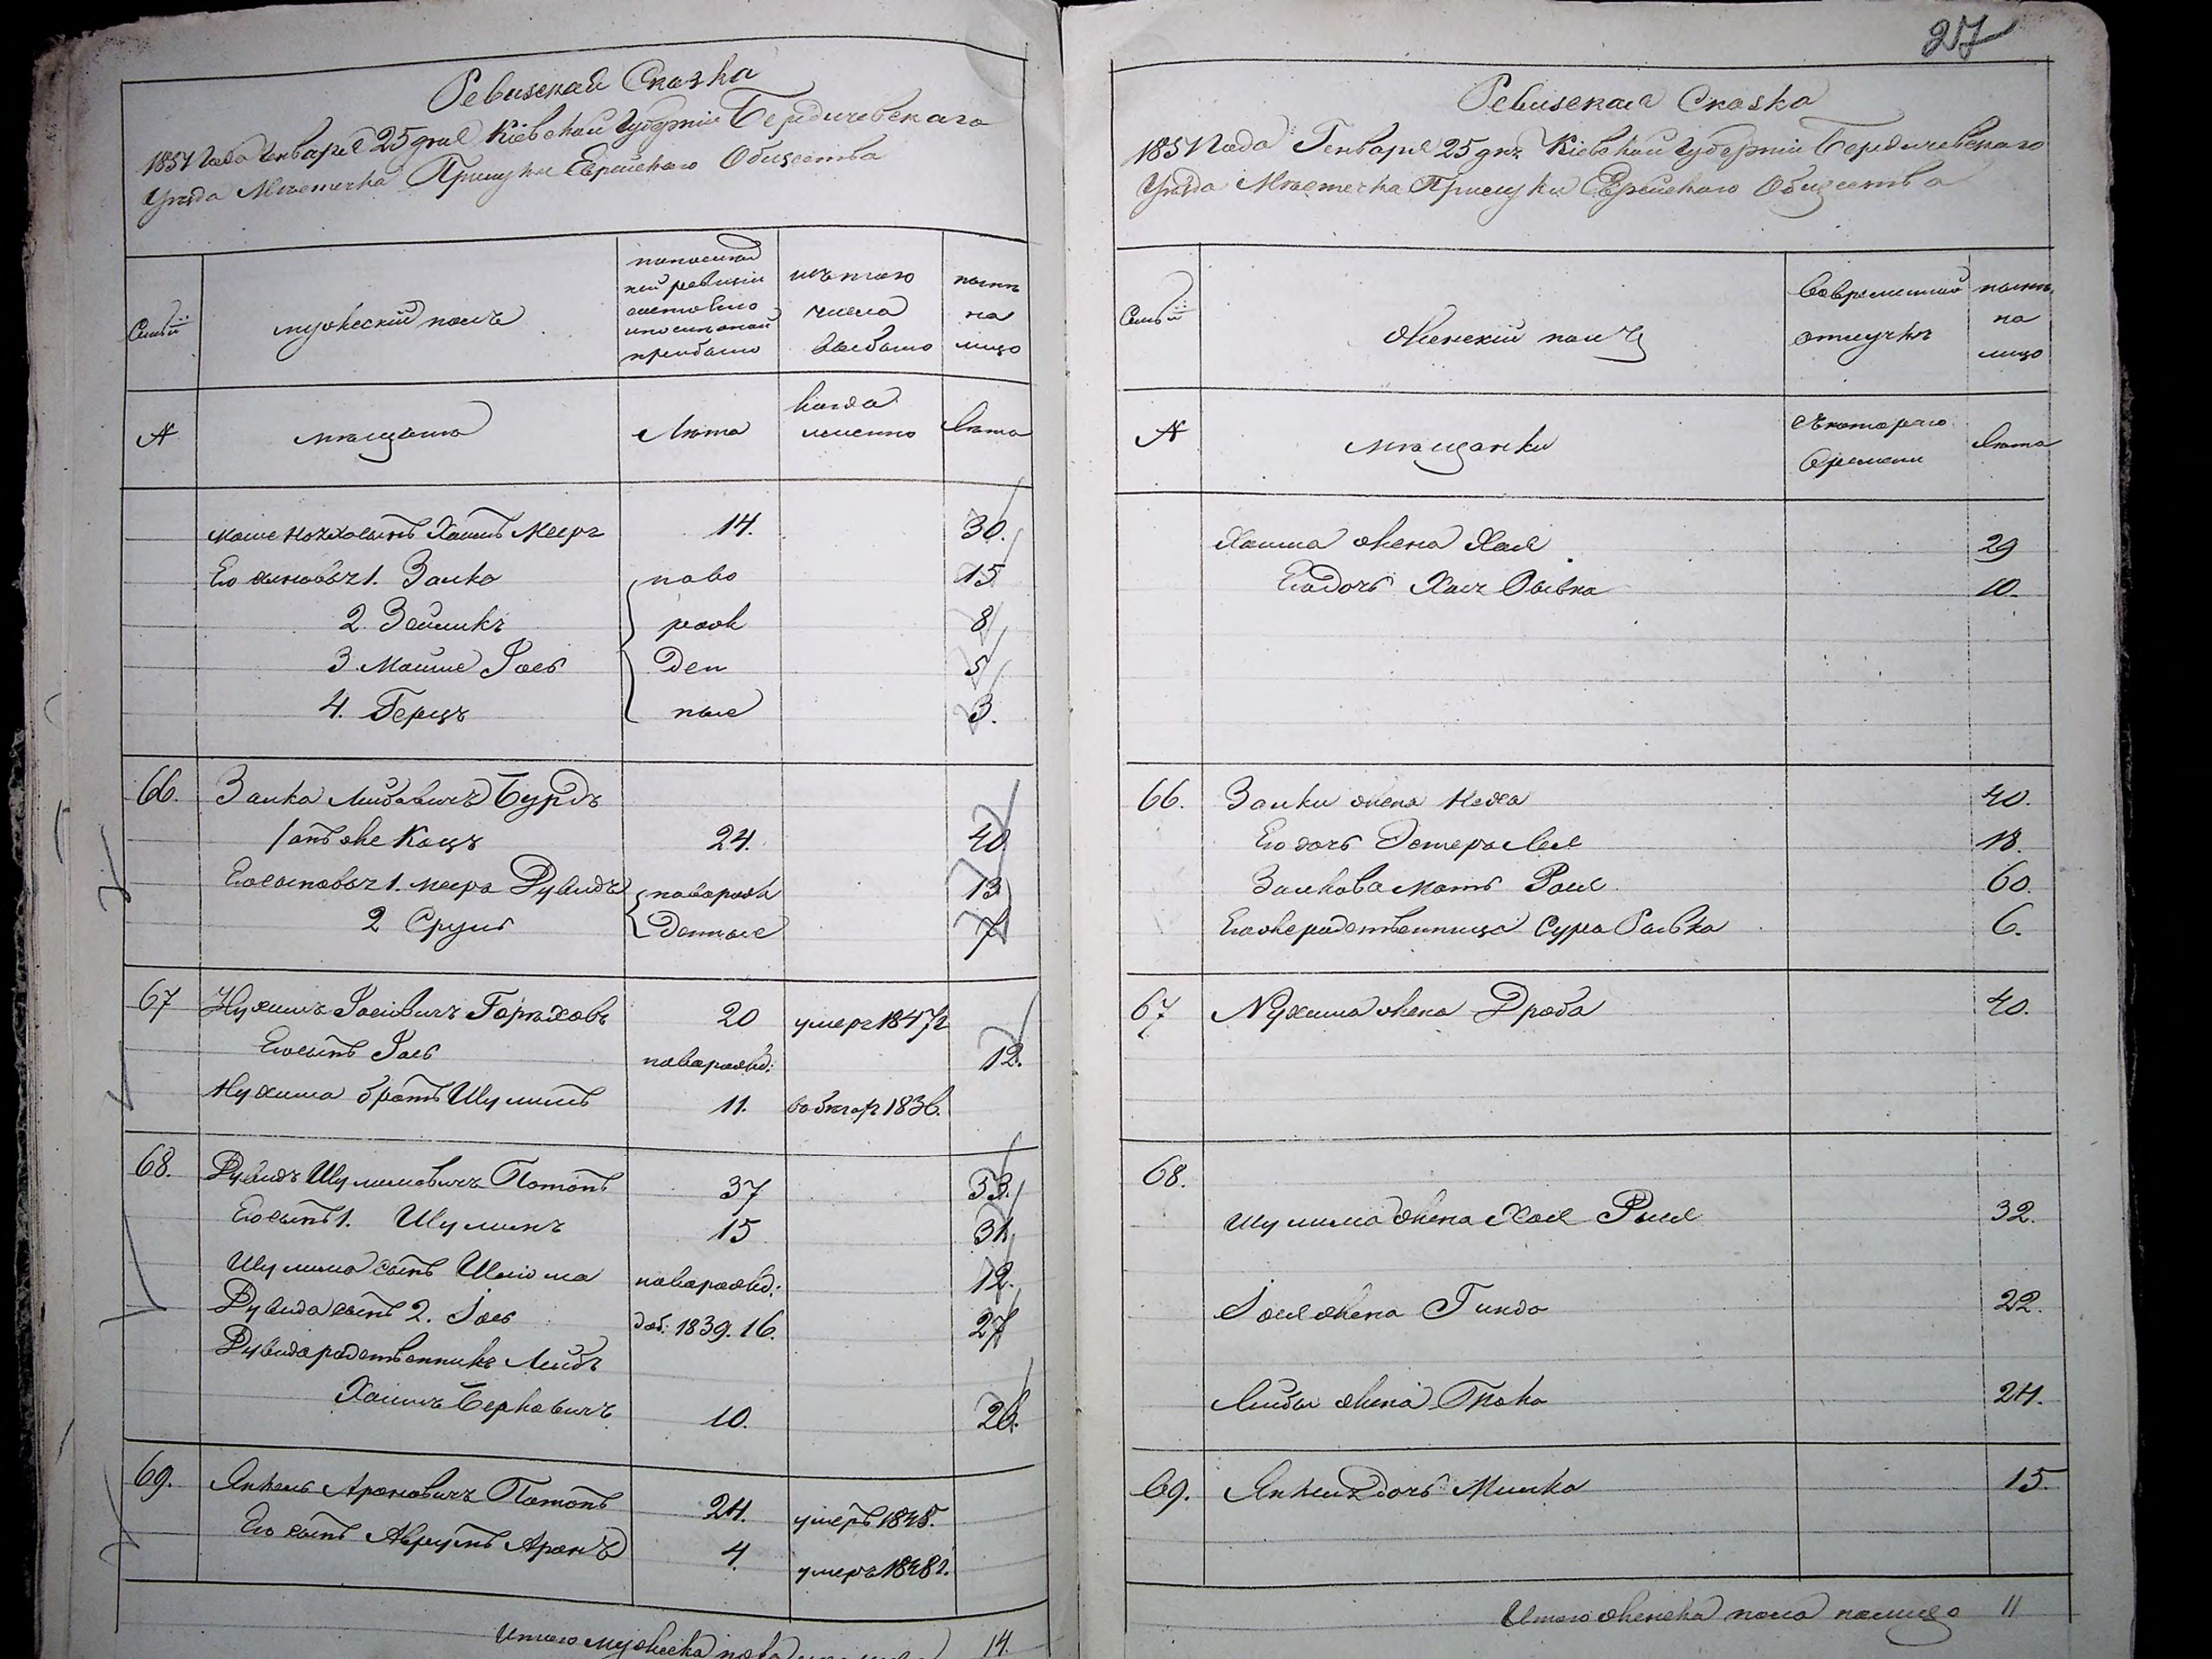 Ревизская Сказка
1851 Года Генваря 25 дня Кіевской Губерніи Бердичевскаго
Уѣзда Мѣстечка Прилуки Еврейскаго Общества
Семьи
мужескій полъ
по последней ревизіи состояло и после оной прибыло
изъ того числа выбыло
нынѣ на лицо
№
мѣщане
Лѣта
когда именно
Лѣта
Хаимъ Мееръ 14. 30.
Его сыновья 1. Занко ново 15
2. Зейликъ рож 8
3. Мошке Іось ден 5
4. Герцъ ные 3.
66. Занка Лейбовичъ Бурдъ
онъ же Кацъ 24. 40
Его сыновья 1. Мееръ Дувидъ новорож 13
2 Сруль денные 7
67 Нухимъ Іосіовичъ Гороховъ 20 умеръ 1847 г
Его сынъ Іось новорожд: 12.
Нухима братъ Шулимъ 11. въ бѣгахъ 1836.
68. Дувидъ Шулимовичъ Потопъ 37 53.
Его сынъ 1. Шулимъ 15 31.
Шулима сынъ Шліома новорожд: 12.
Дувида сынъ 2. Іось доб: 1839. 16. 27
Дувида родственникъ Лейбъ
Хаимъ Берковичъ 10. 26.
69. Янкель Ароновичъ Потопъ 24. умеръ 1845.
Его сынъ Аврумъ Аронъ 4. умеръ 1848 г.
Итого мужеска пола 14.
27
Ревизская Сказка
1851 Года Генваря 25 дня Кіевской Губерніи Бердичевскаго
Уѣзда Мѣстечка Прилуки Еврейскаго Общества
Семьи
Женскій полъ
Во временной отлучкѣ
нынѣ на лицо
№
мѣщанки
съ котораго времени
Лѣта
Хаима жена Хая 29
Его дочь Хая Рывка 10.
66. Занки жена Неха 40.
Его дочь Эстеръ Лея 18.
Занкова мать Рося 60.
Его же родственница Сура Рывка 6.
67 Нухима жена Дроба 40.
68.
Шулима жена Хая Рыся 32.
Іося жена Гинда 22.
Лейбы жена Трока 24.
69. Янкеля дочь Милка 15.
Итого женска пола налицо 11